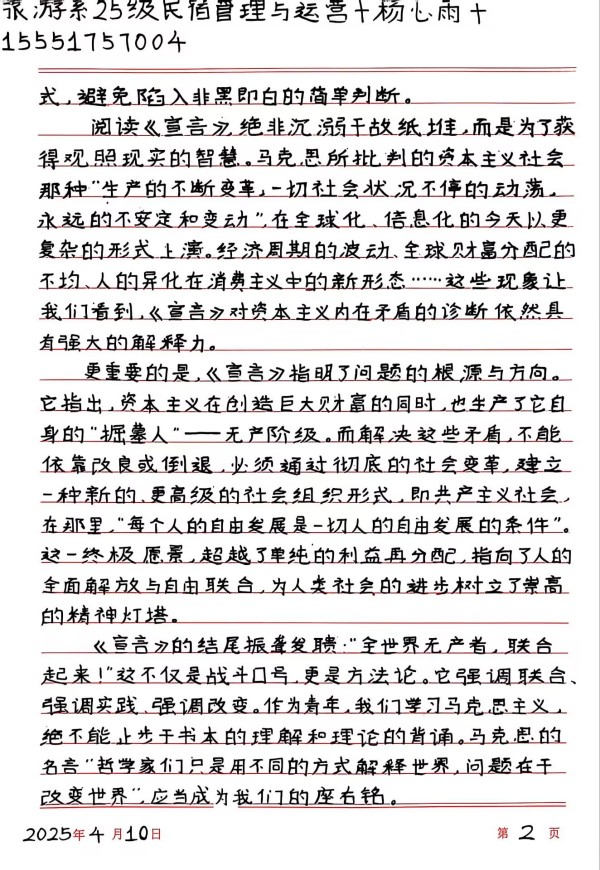 旅游系25级民宿管理与运营+杨心雨+
15551757004
式,避免陷入非黑即白的简单判断。
阅读《宣言》,绝非沉溺于故纸堆,而是为了获
得观照现实的智慧。马克思所批判的资本主义社会
那种"生产的不断变革,一切社会状况不停的动荡,
永远的不安定和变动",在全球化、信息化的今天以更
复杂的形式上演。经济周期的波动、全球财富分配的
不均、人的异化在消费主义中的新形态……这些现象让
我们看到,《宣言》对资本主义内在矛盾的诊断依然具
有强大的解释力。
更重要的是,《宣言》指明了问题的根源与方向。
它指出,资本主义在创造巨大财富的同时,也生产了它自
身的"掘墓人"——无产阶级。而解决这些矛盾,不能
依靠改良或倒退,必须通过彻底的社会变革,建立
一种新的、更高级的社会组织形式,即共产主义社会,
在那里,"每个人的自由发展是一切人的自由发展的条件"。
这一终极愿景,超越了单纯的利益再分配,指向了人的
全面解放与自由联合,为人类社会的进步树立了崇高
的精神灯塔。
《宣言》的结尾振聋发聩:"全世界无产者,联合
起来!"这不仅是战斗口号,更是方法论。它强调联合、
强调实践、强调改变。作为青年,我们学习马克思主义,
绝不能止步于书本的理解和理论的背诵。马克思的
名言"哲学家们只是用不同的方式解释世界,问题在于
改变世界",应当成为我们的座右铭。
2025年4月10日 第2页